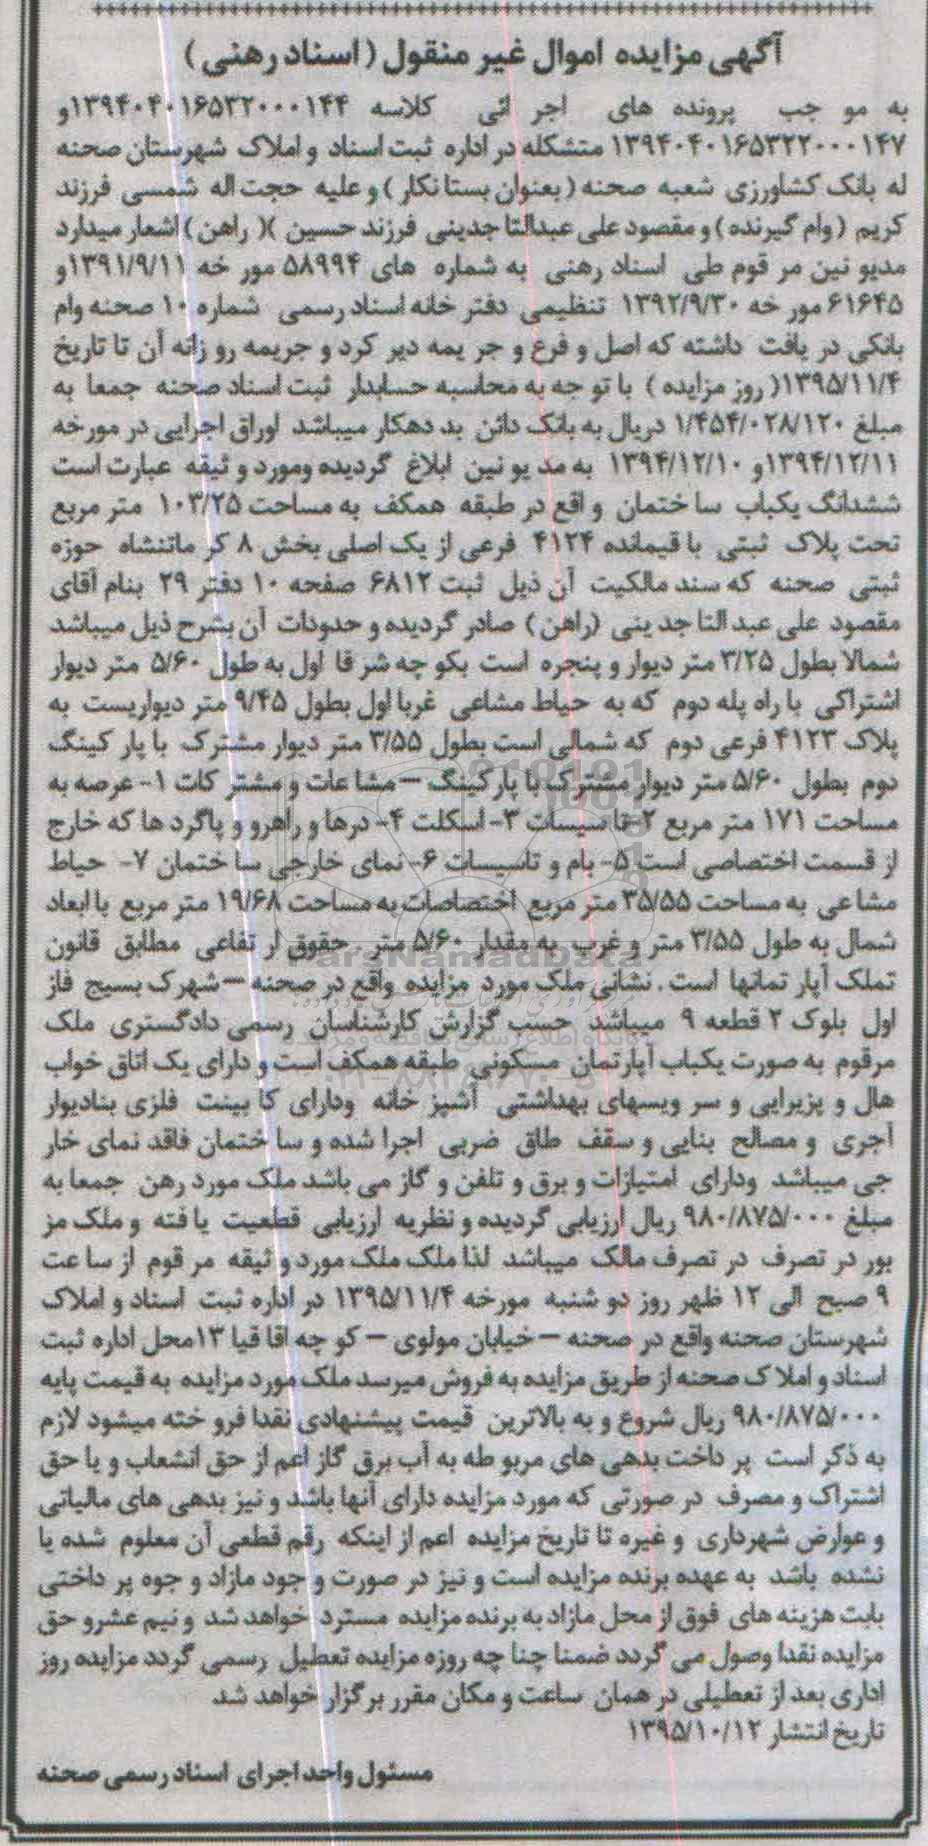 آگهی مزایده اموال غیر منقول (اسناد رهنی)
به مو جب پرونده های اجر ائی کلاسه ۱۳۹۴۰۴۰۱۶۵۳۲۰۰۰۱۴۴و
۱۳۹۴۰۴۰۱۶۵۳۲۲۰۰۰۱۴۷ متشکله در اداره ثبت اسناد و املاک شهرستان صحنه
له بانک کشاورزی شعبه صحنه (بعنوان بستا نکار) و علیه حجت اله شمسی فرزند
کریم (وام گیرنده) و مقصود علی عبدالتا جدینی فرزند حسین )( راهن) اشعار میدارد
مدیو نین مر قوم طی اسناد رهنی به شماره های ۵۸۹۹۴ مور خه ۱۳۹۱/۹/۱۱و
۶۱۶۴۵ مور خه ۱۳۹۲/۹/۳۰ تنظیمی دفتر خانه اسناد رسمی شماره ۱۰ صحنه وام
بانکی در یافت داشته که اصل و فرع و جر یمه دیر کرد و جریمه رو زانه آن تا تاریخ
۱۳۹۵/۱۱/۴( روز مزایده ) با تو جه به محاسبه حسابدار ثبت اسناد صحنه جمعا به
مبلغ ۱/۴۵۴/۰۲۸/۱۲۰ دریال به بانک دائن بد دهکار میباشد اوراق اجرایی در مورخه
۱۳۹۴/۱۲/۱۱و ۱۳۹۴/۱۲/۱۰ به مد یو نین ابلاغ گردیده ومورد و ثیقه عبارت است
ششدانگ یکباب سا ختمان و اقع در طبقه همکف به مساحت ۱۰۳/۲۵ متر مربع
تحت پلاک ثبتی با قیمانده ۴۱۲۴ فرعی از یک اصلی بخش ۸ کر مانشاه حوزه
ثبتی صحنه که سند مالکیت آن ذیل ثبت ۶۸۱۲ صفحه ۱۰ دفتر ۲۹ بنام آقای
مقصود علی عبد التا جد ینی (راهن) صادر گردیده و حدودات آن بشرح ذیل میباشد
شمالا بطول ۳/۲۵ متر دیوار و پنجره است بکو چه شر قا اول به طول ۵/۶۰ متر دیوار
اشتراکی با راه پله دوم که به حیاط مشاعی غربا اول بطول ۹/۴۵ متر دیواریست به
پلاک ۴۱۲۳ فرعی دوم که شمالی است بطول ۳/۵۵ متر دیوار مشترک با پار کینگ
دوم بطول ۵/۶۰ متر دیوار مشترک با پارکینگ – مشا عات و مشتر کات ۱- عرصه به
مساحت ۱۷۱ متر مربع ۲-تا سیسات ۳- اسکلت ۴- درها و راهرو و پاگرد ها که خارج
از قسمت اختصاصی است ۵- بام و تاسیسات ۶- نمای خارجی سا ختمان ۷- حیاط
مشا عی به مساحت ۳۵/۵۵ متر مربع اختصاصات به مساحت ۱۹/۶۸ متر مربع با ابعاد
شمال به طول ۳/۵۵ متر و غرب به مقدار ۵/۶۰ متر . حقوق ار تفاعی مطابق قانون
تملک آپار تمانها است . نشانی ملک مورد مزایده واقع در صحنه – شهرک بسیج فاز
اول بلوک ۲ قطعه ۹ میباشد حسب گزارش کارشناسان رسمی دادگستری ملک
مرقوم به صورت یکباب آپارتمان مسکونی طبقه همکف است و دارای یک اتاق خواب
هال و پزیرایی و سر ویسهای بهداشتی آشپز خانه ودارای کا بینت فلزی بنادیوار
آجری و مصالح بنایی و سقف طاق ضربی اجرا شده و سا ختمان فاقد نمای خار
جی میباشد ودارای امتیازات و برق و تلفن و گاز می باشد ملک مورد رهن جمعا به
مبلغ ۹۸۰/۸۷۵/۰۰۰ ریال ارزیابی گردیده و نظریه ارزیابی قطعیت یا فته و ملک مز
بور در تصرف در تصرف مالک میباشد لذا ملک ملک مورد و ثیقه مر قوم از سا عت
۹ صبح الی ۱۲ ظهر روز دو شنبه مورخه ۱۳۹۵/۱۱/۴ در اداره ثبت اسناد و املاک
شهرستان صحنه واقع در صحنه – خیابان مولوی – کو چه اقا قیا ۱۳محل اداره ثبت
اسناد و املا ک صحنه از طریق مزایده به فروش میرسد ملک مورد مزایده به قیمت پایه
۹۸۰/۸۷۵/۰۰۰ ریال شروع و به بالاترین قیمت پیشنهادی نقدا فرو خته میشود لازم
به ذکر است پر داخت بدهی های مربو طه به آب برق گاز اعم از حق انشعاب و یا حق
اشتراک و مصرف در صورتی که مورد مزایده دارای آنها باشد و نیز بدهی های مالیاتی
و عوارض شهرداری و غیره تا تاریخ مزایده اعم از اینکه رقم قطعی آن معلوم شده یا
نشده باشد به عهده برنده مزایده است و نیز در صورت و جود مازاد و جوه پر داختی
بابت هزینه های فوق از محل مازاد به برنده مزایده مسترد خواهد شد و نیم عشرو حق
مزایده نقدا وصول می گردد ضمنا چنا چه روزه مزایده تعطیل رسمی گردد مزایده روز
اداری بعد از تعطیلی در همان ساعت و مکان مقرر برگزار خواهد شد
تاریخ انتشار ۱۳۹۵/۱۰/۱۲
مسئول واحد اجرای اسناد رسمی صحنه
ParsNamadData